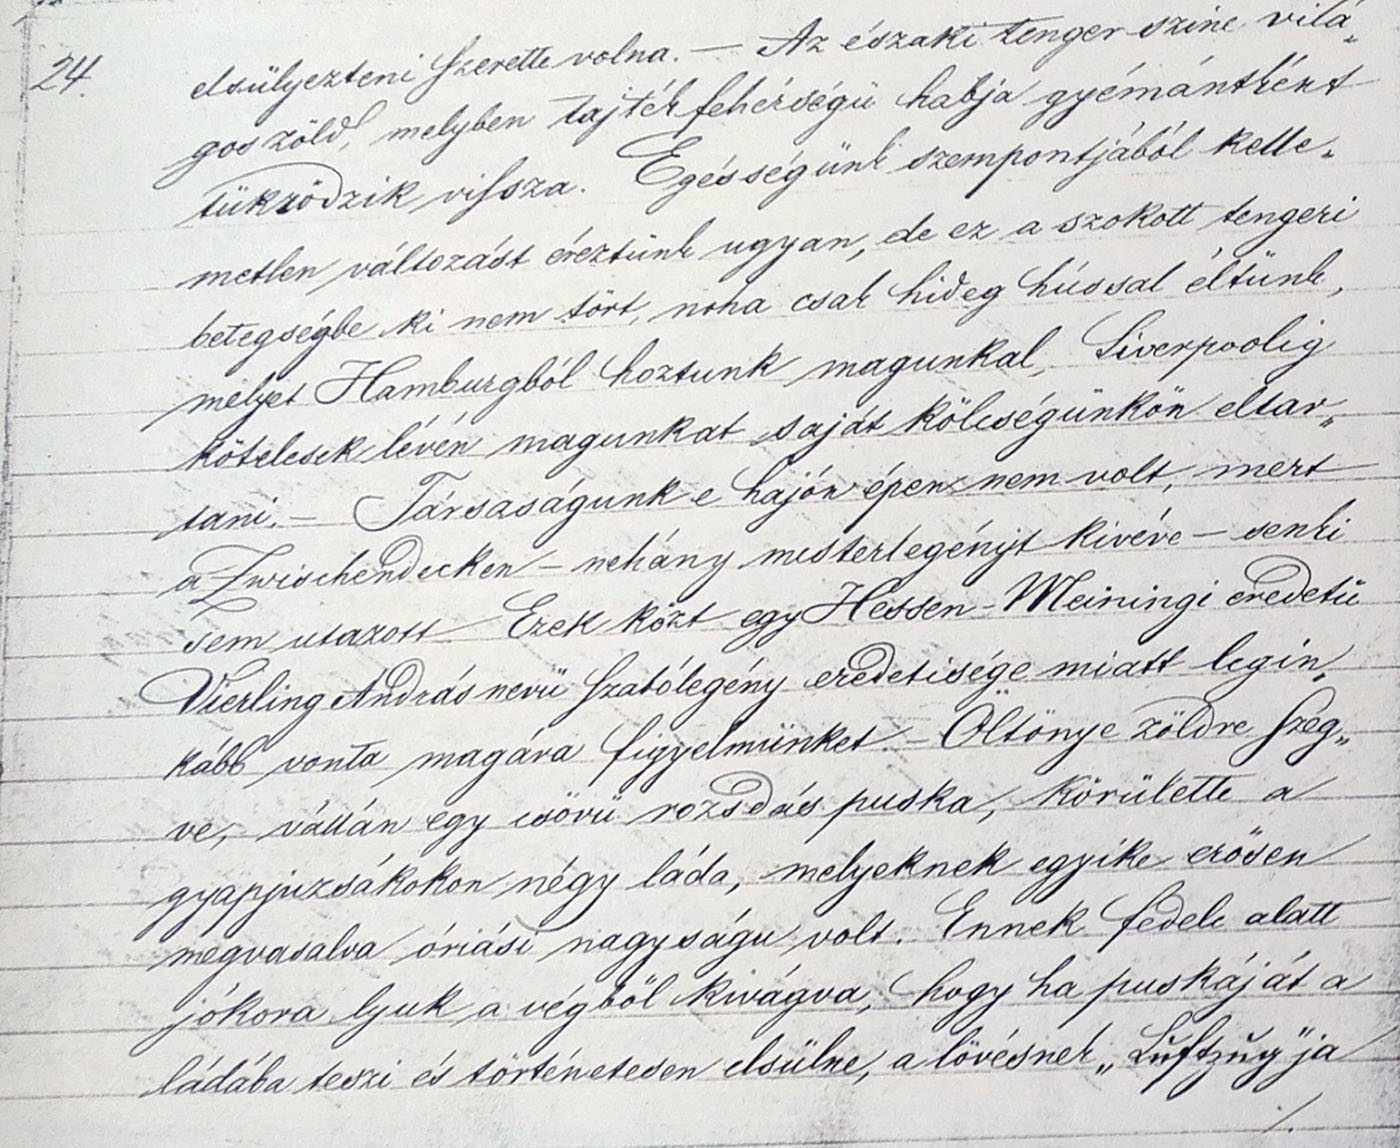 24.
elsülyezteni szerette volna. — Az északi tenger szine vilá„
goszöld, melyben tajték fehérségü habja gyémántként
tükrödzik vissza. Egésségünk szempontjából kelle„
metlen változást éreztünk ugyan, de ez a szokott tengeri
betegségbe ki nem tört, noha csak hideg hússal éltünk,
melyet Hamburgból hoztunk magunkal, Liverpoolig
kötelesek lévén magunkat saját kölcségünkön eltar„
tani. — Társaságunk e hajón épen nem volt, mert
a Zwischendecken — nehány mesterlegényt kivéve — senki
sem utazott Ezek közt egy Hessen-Meiningi eredetü
Vierling András nevü szabólegény eredetisége miatt legin„
kább vonta magára figyelmünket. — Öltönye zöldre szeg„
ve, vállán egy csövü rozsdás puska, körülette a
gyapjuzsákokon négy láda, melyeknek egyike erösen
megvasalva óriási nagyságu volt. Ennek fedele alatt
jókora lyuk a végböl kivágva, hogy ha puskáját a
ládába teszi és történetesen elsülne, a lövésnek „Luftzug"ja
./.